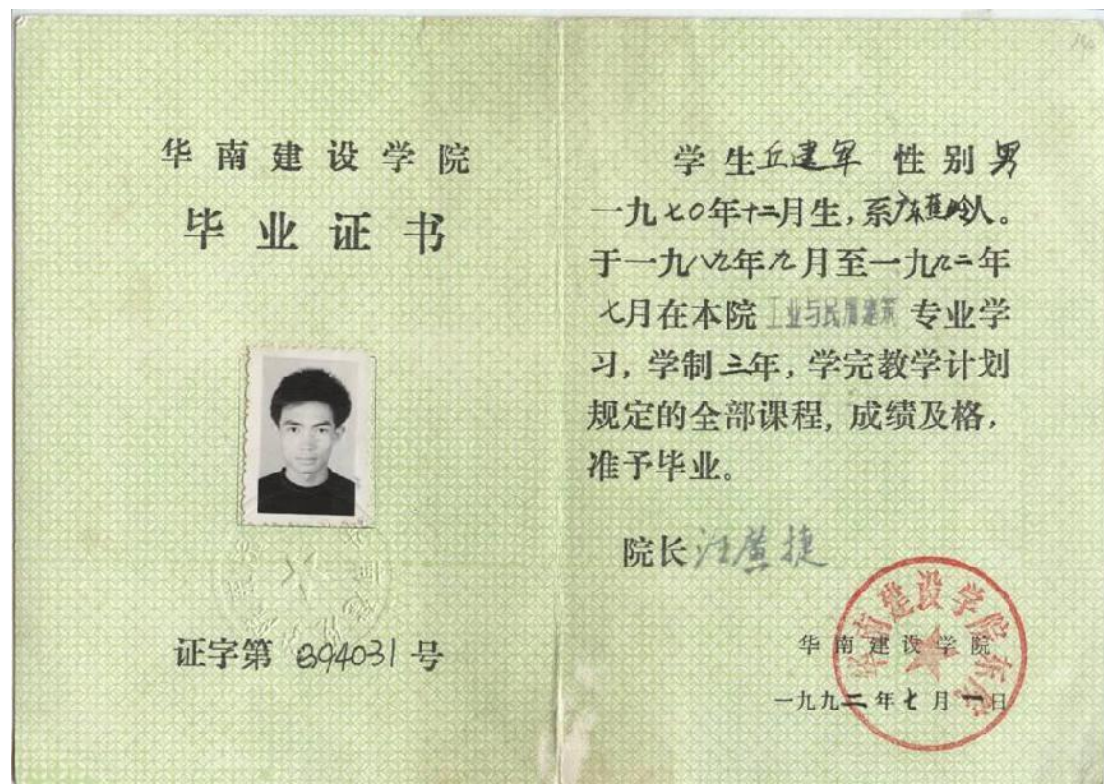 华南建设学院
毕业证书
证字第 894031 号
学生丘建军 性别男
一九七〇年十二月生，系广东蕉岭人。
于一九八九年九月至一九九二年
七月在本院 工业与民用建筑 专业学
习，学制三年，学完教学计划
规定的全部课程，成绩及格，
准予毕业。
院长
华南建设学院
一九九二年七月一日
华南建设学院东院